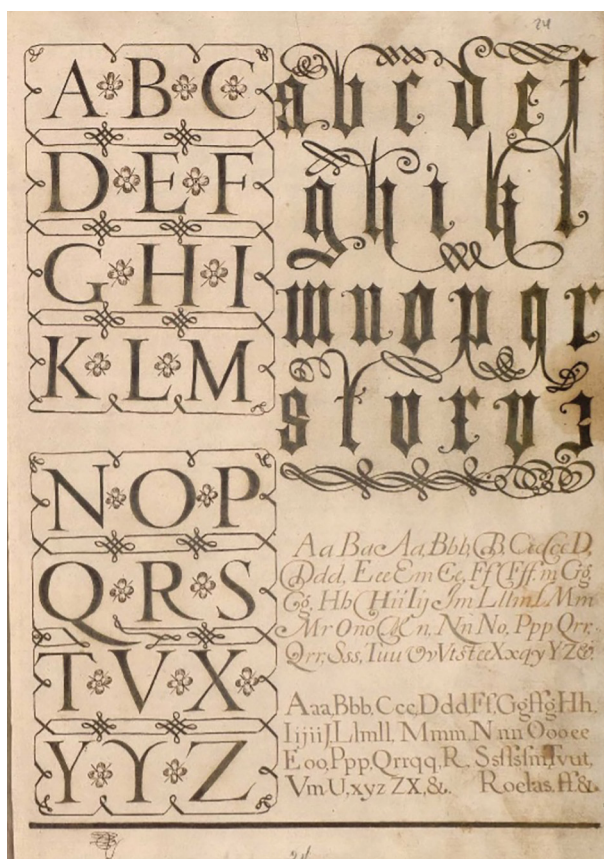 24
A B C
D E F
G H I
K L M
N O P
Q R S
T V X
Y Y Z
a b c d e f
g h i k l
m n o p q r
s t v x y z
Aa Bac Aa, Bbb, B, Ccc Cee D,
Dddd, Eee Em Ee, Ff Eff, m Gg,
Gg, Hh Hii Iij Jm Lllml Mm
Mr Ono n, Nn No, Ppp Qrr,
Qrr, Sss, Tuu Vv Vtstee Xxqy YZ&.
Aaa, Bbb, Ccc, Ddd Ff, Ggffg Hh,
Iijii J Llmll, Mmm, Nnn Oooee
Eoo, Ppp, Qrrqq, R, Ssflsfm, Tvut,
Vm U, xyz ZX, &. Roelas, ff &.
24